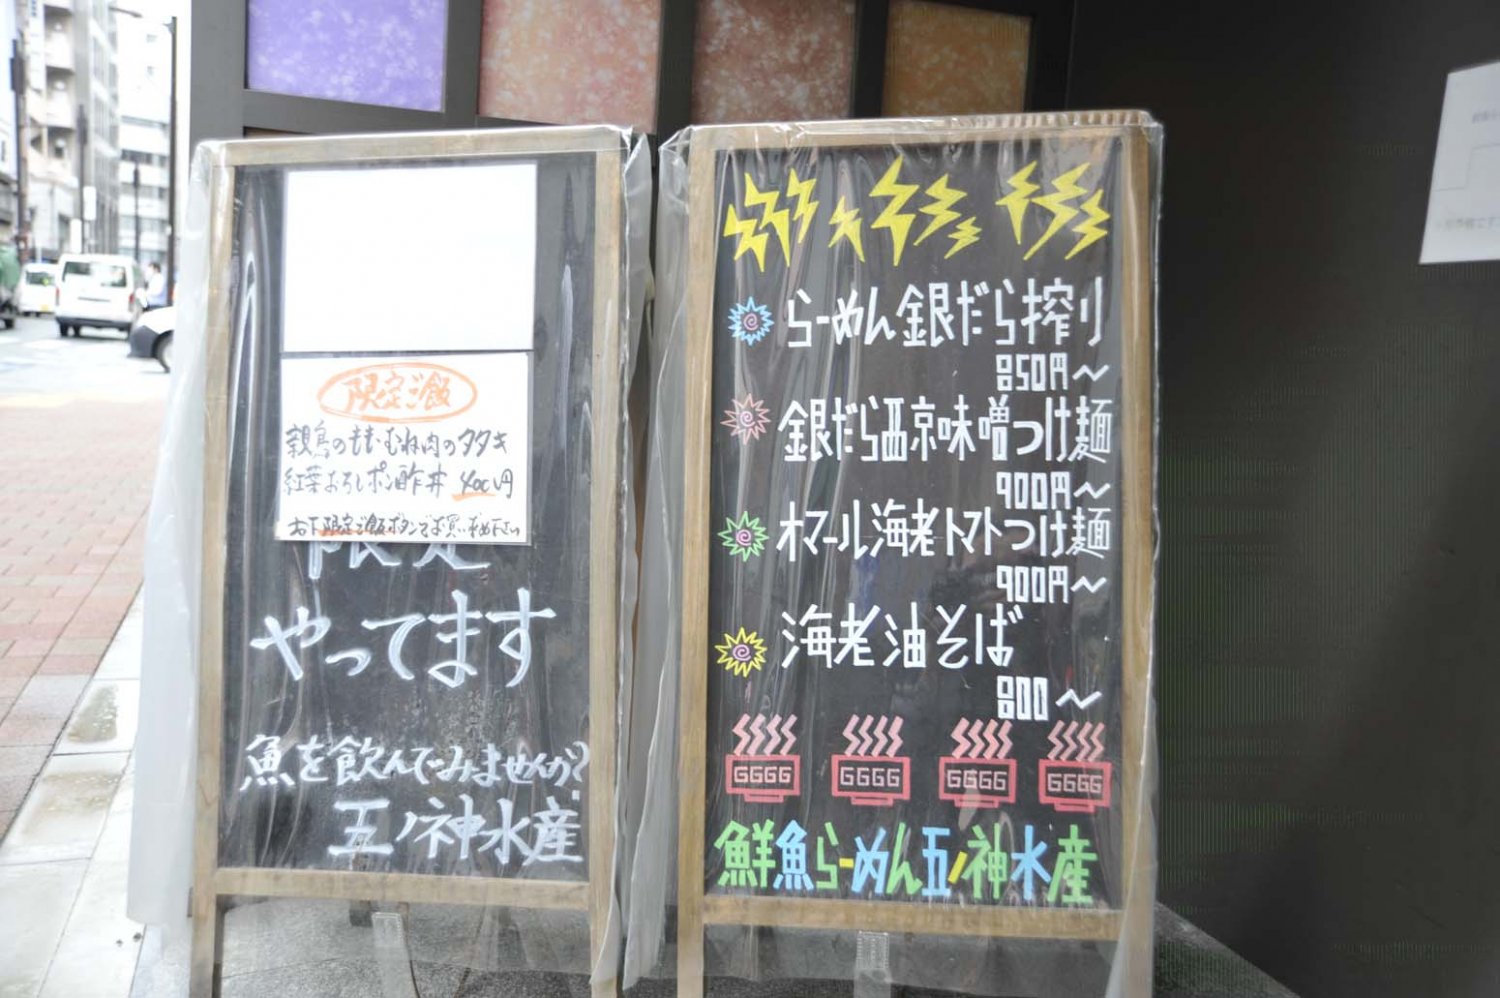 限定ご飯
親鳥のもも・むね肉のタタキ
紅葉おろしポン酢丼 400円
お下限定ご飯ボタンでお買い求め下さい
限定
やってます
魚を飲んでみませんか?
五ノ神水産
らーめん銀だら搾り
850円〜
銀だら西京味噌つけ麺
900円〜
オマール海老トマトつけ麺
900円〜
海老油そば
800〜
GGGG GGGG GGGG GGGG
鮮魚らーめん五ノ神水産